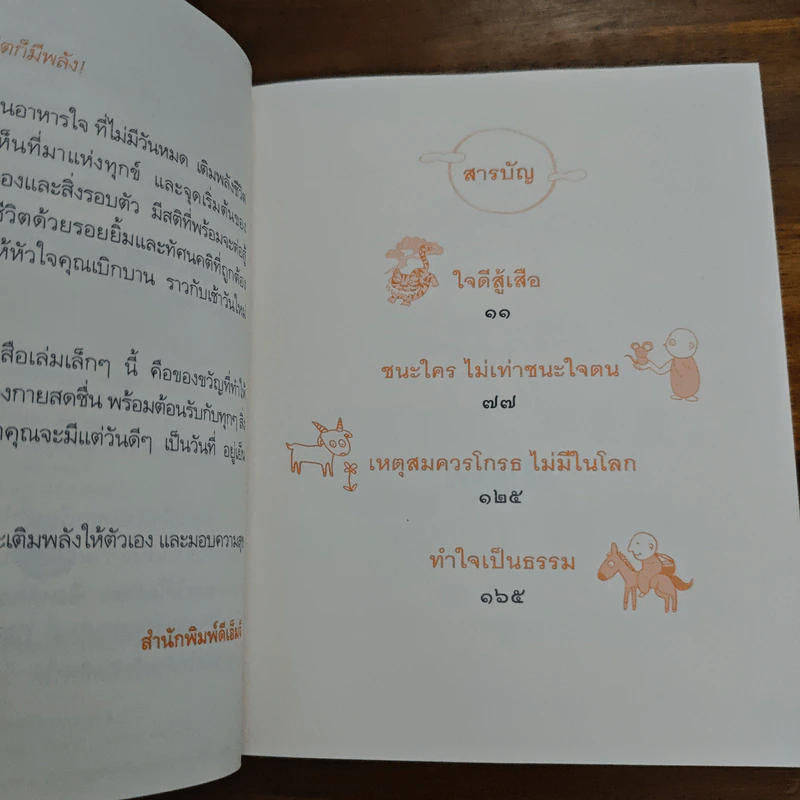 ก็มีพลัง!
อาหารใจ ที่ไม่มีวันหมด เติมพลังชีวิต
ที่มาแห่งทุกข์ และจุดเริ่มต้นของ
และสิ่งรอบตัว มีสติที่พร้อมจะต่อสู้
ชีวิตด้วยรอยยิ้มและทัศนคติที่ถูกต้อง
ให้หัวใจคุณเบิกบาน ราวกับเช้าวันใหม่
เล่มเล็กๆ นี้ คือของขวัญที่ทำให้
กายสดชื่น พร้อมต้อนรับกับทุกๆ สิ่ง
คุณจะมีแต่วันดีๆ เป็นวันที่ อยู่เย็น
เติมพลังให้ตัวเอง และมอบความสุข
สำนักพิมพ์ดีเอ็มจี
สารบัญ
ใจดีสู้เสือ
๑๑
ชนะใคร ไม่เท่าชนะใจตน
๗๗
เหตุสมควรโกรธ ไม่มีในโลก
๑๒๕
ทำใจเป็นธรรม
๑๖๕